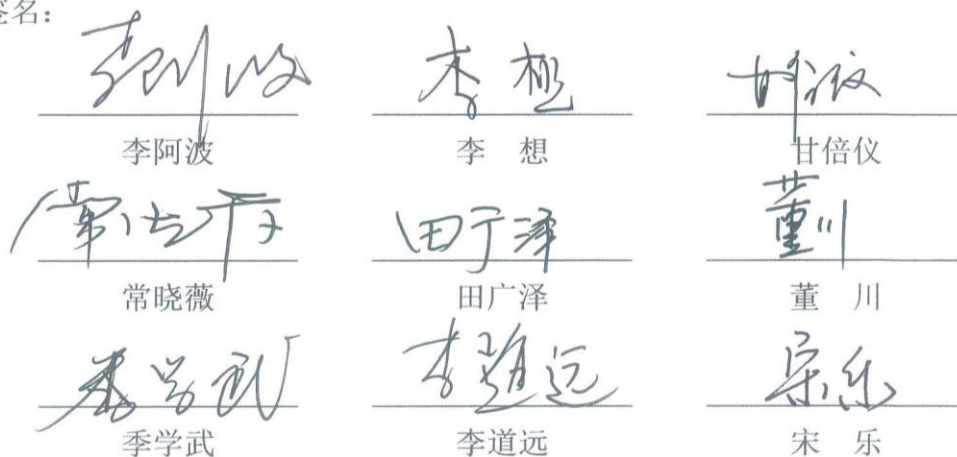 签名：
李阿波 李想 甘倍仪
李阿波 李 想 甘倍仪
常晓薇 田广泽 董川
常晓薇 田广泽 董 川
季学武 李道远 宋乐
季学武 李道远 宋 乐